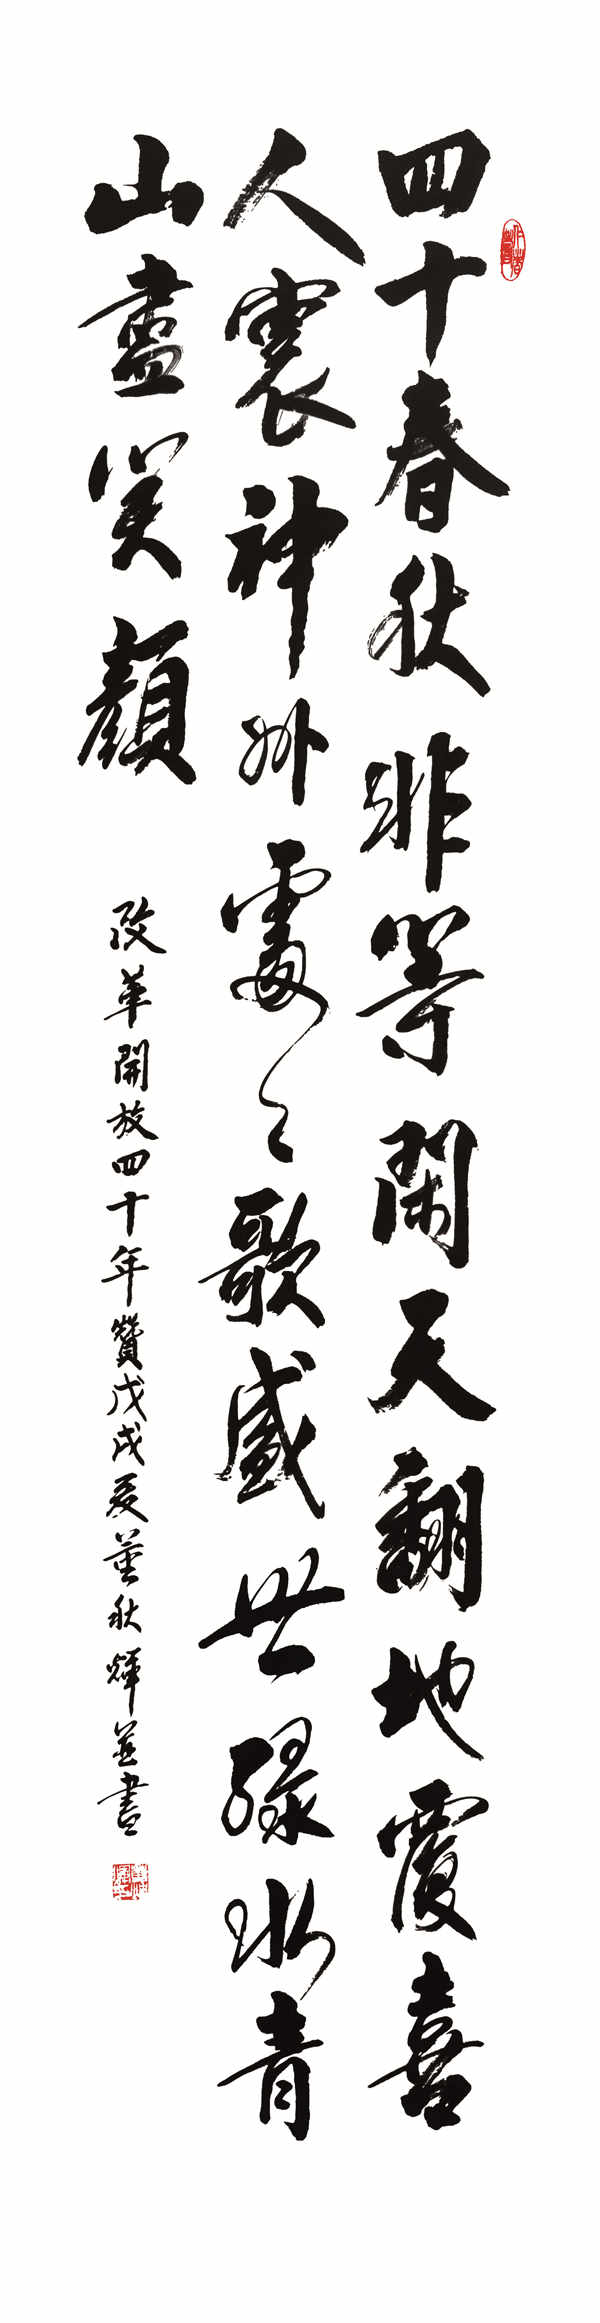 四十春秋非等閑天翻地覆喜
人震神州處々歌盛世綠水青
山盡笑顏
改革開放四十年贊戊戌夏董秋輝并書